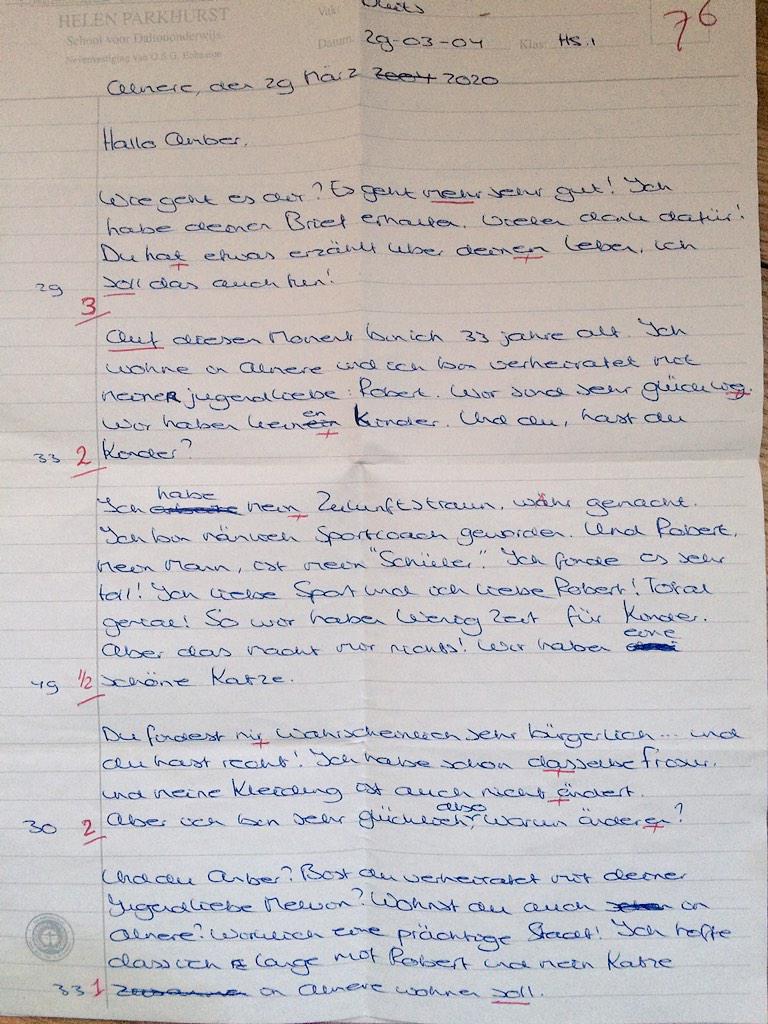 HELEN PARKHURST
School voor Daltononderwijs
Nevenvestiging van O.S.G. Echnaton
Vak: Duits
Datum: 29-03-04 Klas: H5.1
76
Almere, den 29 März 2004 2020
Hallo Amber,
Wie geht es dir? Es geht mehr sehr gut! Ich
habe deinen Brief erhalten. Vielen dank dafür!
Du hat etwas erzählt über deinen Leben, ich
29 soll das auch tun!
3
Auf diesen Moment bin ich 33 jahre alt. Ich
wohne in Almere und ich bin verheiratet mit
meiner jugendliebe: Robert. Wir sind sehr glücklig.
Wir haben keinen Kinder. Und du, hast du
33 2 Kinder?
Ich habe mein Zukunftstraum, wahr gemacht.
Ich bin nämlich Sportcoach geworden. Und Robert,
mein Mann, ist mein "Schüler". Ich finde es sehr
toll! Ich liebe Sport und ich liebe Robert! Total
genial! So wir haben wenig Zeit für Kinder.
Aber das macht mir nichts! Wir haben eine
49 1/2 schöne Katze.
Du findest mir wahrscheinlich sehr bürgerlich... und
du hast recht! Ich habe schon dasselbe frisur,
und meine Kleiding ist auch nicht ändert.
30 2 Aber ich bin sehr glücklich, also warum änderen?
Und du Amber? Bist du verheiratet mit deiner
Jugendliebe Melvin? Wohnst du auch in
Almere? Wirklich eine prächtige Stadt! Ich hoffe
dass ich lange mit Robert und mein Katze
33 1 in Almere wohnen soll.